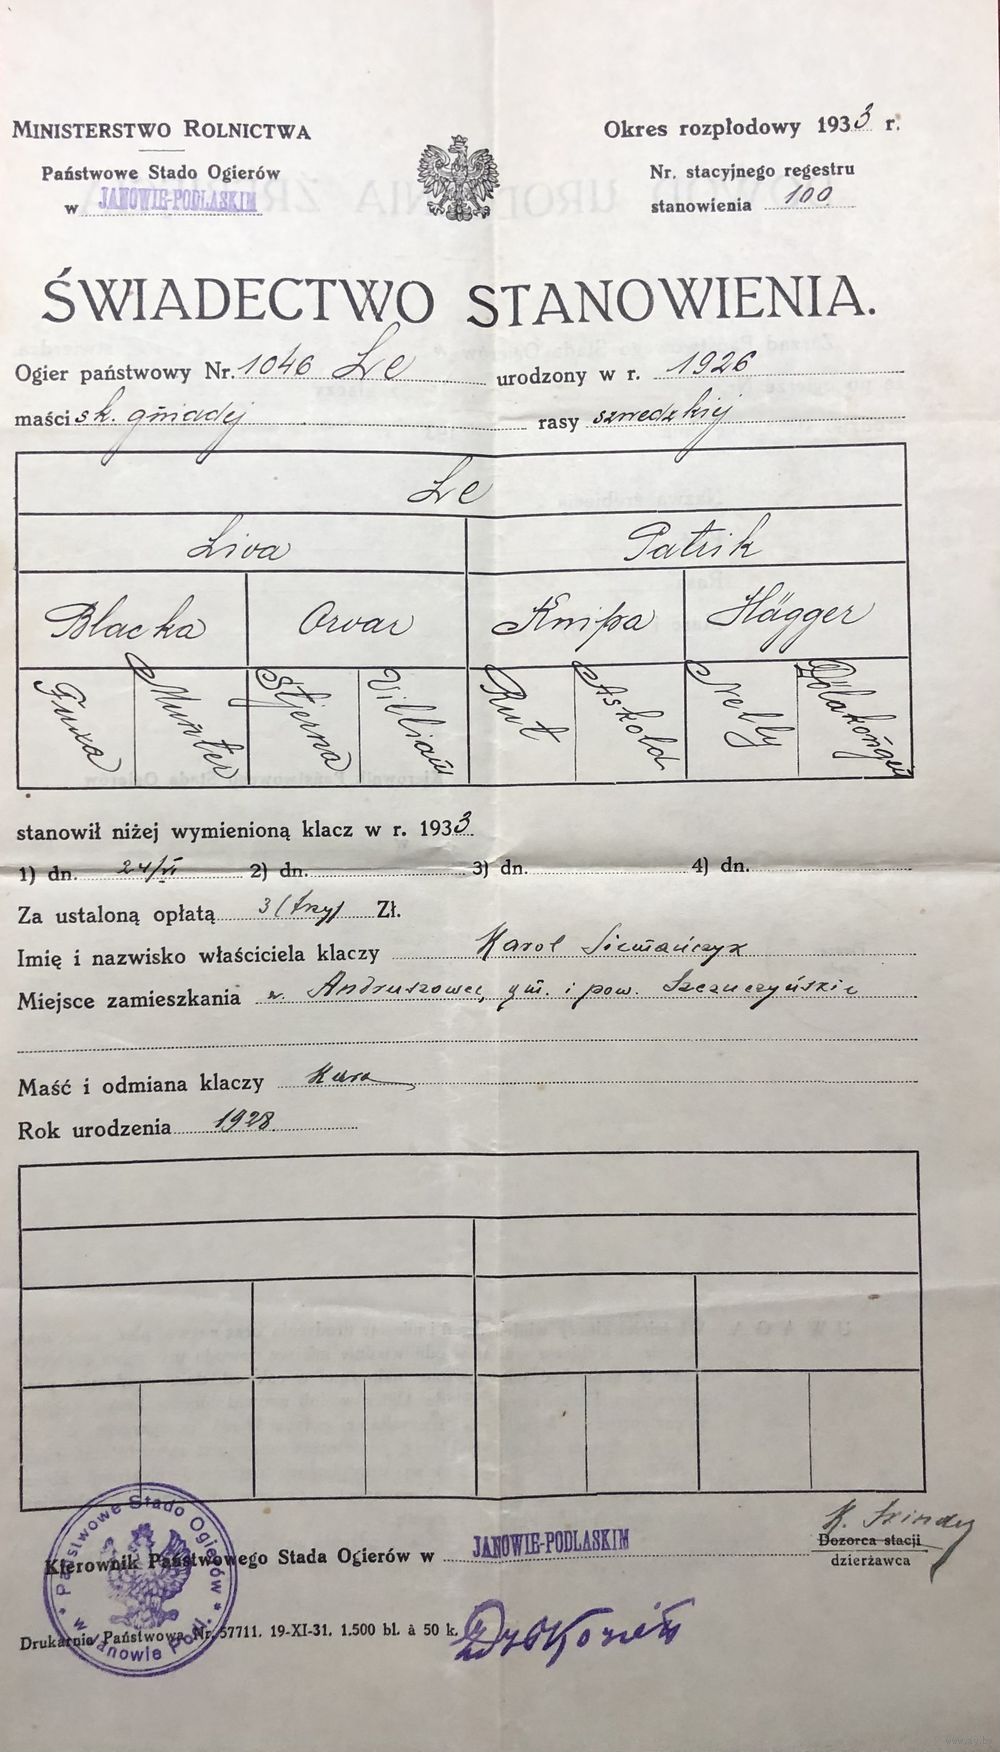 MINISTERSTWO ROLNICTWA
Państwowe Stado Ogierów
w JANOWIE-PODLASKIM
Okres rozpłodowy 1933 r.
Nr. stacyjnego regestru
stanowienia 100
ŚWIADECTWO STANOWIENIA.
Ogier państwowy Nr. 1046 Le urodzony w r. 1926
maści sk. gniadej rasy szwedzkiej
Le
Liva Patrik
Blacka Orvar Knipa Hägger
Fuxa Munter Stjerna Villiam Rut Askold Nelly
stanowił niżej wymienioną klacz w r. 1933
1) dn. 24/VI 2) dn. 3) dn. 4) dn.
Za ustaloną opłatą 3 (trzy) Zł.
Imię i nazwisko właściciela klaczy Karol
Miejsce zamieszkania w. Andruszowce, gm. i pow. Szczuczyńskie
Maść i odmiana klaczy Kara
Rok urodzenia 1928
Kierownik Państwowego Stada Ogierów w JANOWIE-PODLASKIM
K.
Dozorca stacji
dzierżawca
Państwowe Stado Ogierów * w Janowie Podl. *
Drukarnia Państwowa Nr. 57711. 19-XI-31. 1.500 bl. à 50 k.